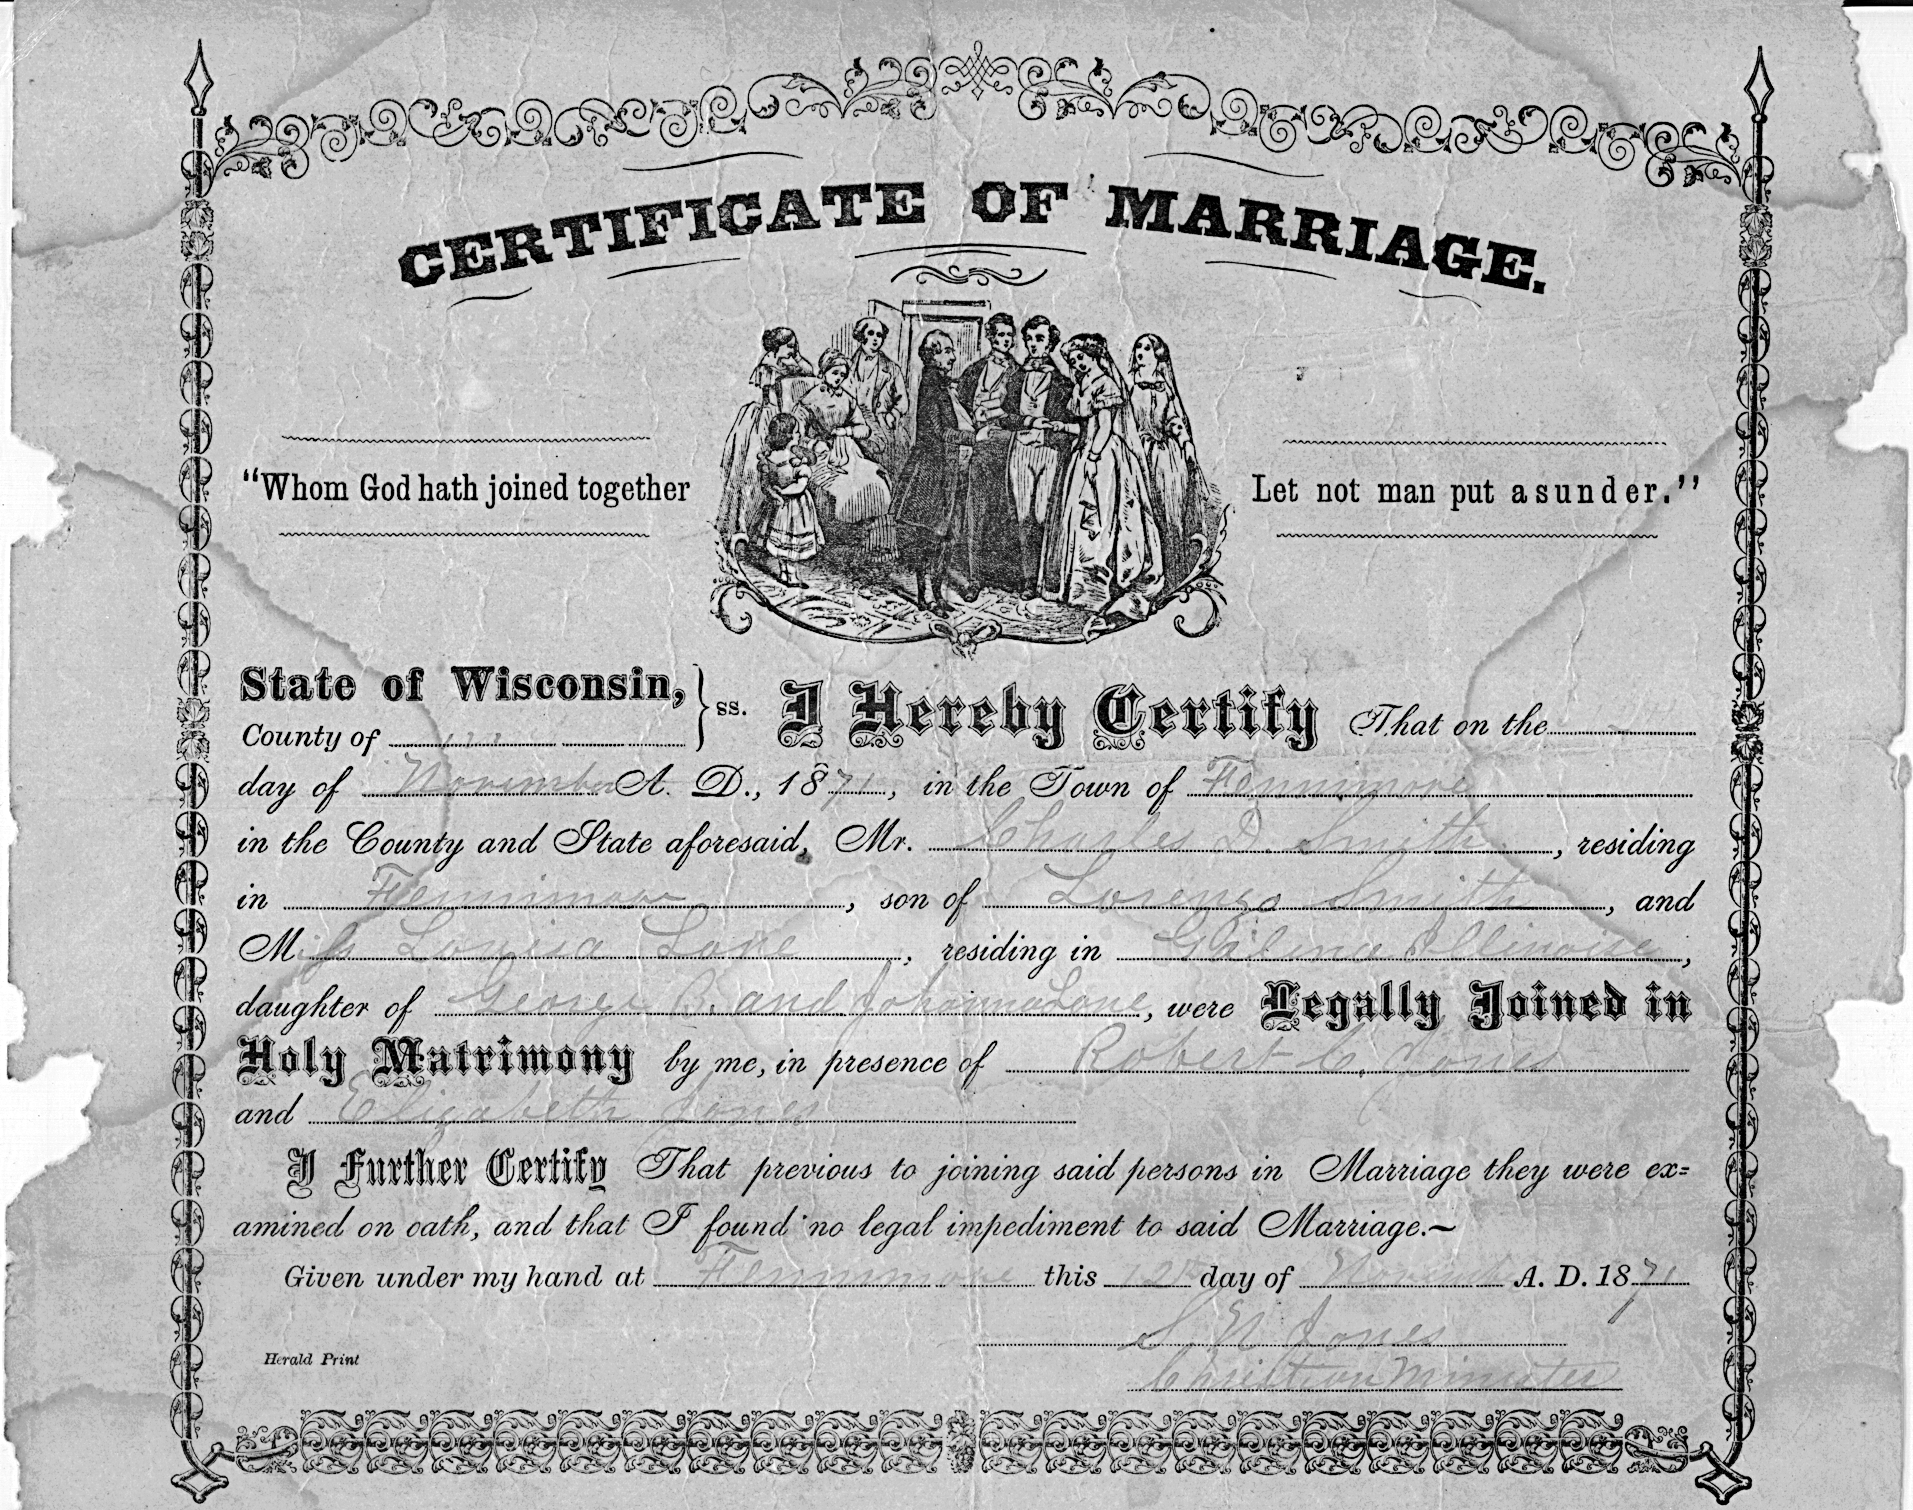 CERTIFICATE OF MARRIAGE.
"Whom God hath joined together
Let not man put asunder."
State of Wisconsin, } ss.
County of
I Hereby Certify That on the
day of November A. D., 1871, in the Town of Fennimore
in the County and State aforesaid, Mr. Charles D. Smith, residing
in Fennimore, son of Lorenzo Smith, and
Miss Louisa Lane, residing in Galena Illinoise,
daughter of George B. and Johanna Lane, were Legally Joined in
Holy Matrimony by me, in presence of Robert C. Jones
and Elizabeth Jones
I Further Certify That previous to joining said persons in Marriage they were ex=
amined on oath, and that I found no legal impediment to said Marriage.~
Given under my hand at Fennimore this 12 day of A. D. 1871
S. N Jones
Christian Minister
Herald Print